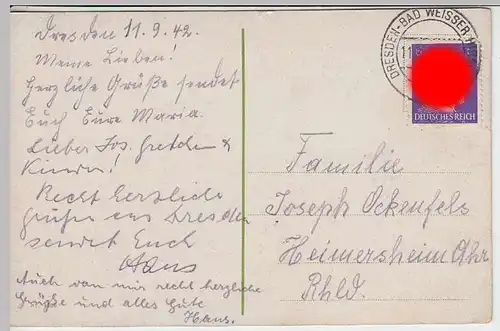 Dresden 11.9.42.
Meine Lieben!
Herzliche Grüße sendet
Euch Eure Maria.
Lieber Jos. Gretchen &
Kinder!
Recht herzliche
Grüße aus Dresden
sendet Euch
Hans
Auch von mir recht herzliche
Grüße und alles Gute
Hans.
DRESDEN-BAD WEISSER H
11
DEUTSCHES REICH
Familie
Joseph Ockenfels
Heimersheim Ahr
Rhld.